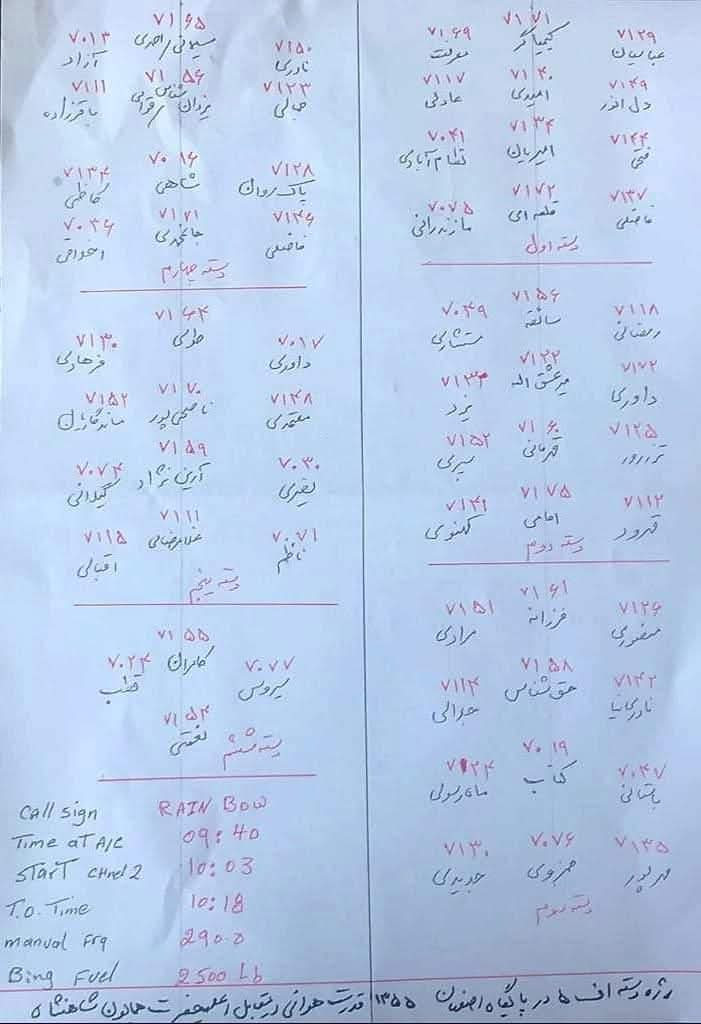 ۷۱۲۹ ۷۱۷۱ ۷۱۶۹
عباسیان کیمیاگر معرفت
۷۱۴۹ ۷۱۴۰ ۷۱۱۷
دل انور امیدی عادلی
۷۱۴۴ ۷۱۳۴ ۷۰۴۱
فتحی امیریان نظام آبادی
۷۱۳۷ ۷۱۷۲ ۷۰۷۵
فاضلی قلعه ای مازندرانی
دسته اول
۷۱۱۸ ۷۱۵۶ ۷۰۴۹
رمضانی سائقه مستشاری
۷۱۷۲ ۷۱۲۲ ۷۱۳۳
داوری میرعشق اله یزد
۷۱۲۵ ۷۱۶۰ ۷۱۵۲
قهرمانی سپری
۷۱۱۲ ۷۱۷۵ ۷۱۴۱
فهرود امامی کهنوی
دسته دوم
۷۱۲۶ ۷۱۶۱ ۷۱۵۱
منصوری فرزانه مرادی
۷۱۴۲ ۷۱۵۸ ۷۱۱۴
نادری نیا حق شناس جدالی
۷۰۴۷ ۷۰۱۹ ۷۱۲۴
باستانی کتاب
۷۱۳۵ ۷۰۷۶ ۷۱۳۰
مهرپور حمزوی جدیدی
دسته سوم
۷۱۵۰ ۷۱۶۵ ۷۰۱۳
نادری احمدی آزاد
۷۱۲۳ ۷۱۵۶ ۷۱۱۱
جمالی یزدان شناس باقرزاده
۷۱۲۸ ۷۰۱۶ ۷۱۳۴
پاک روان شاهی کاظمی
۷۱۴۶ ۷۱۷۱ ۷۰۳۶
فاضلی جانمحمدی اخوان
دسته چهارم
۷۰۱۷ ۷۱۶۴ ۷۱۳۰
داوری طوسی فرهادی
۷۱۴۸ ۷۱۷۰ ۷۱۵۲
معتمدی ناصحی پور ماندگاریان
۷۰۳۰ ۷۱۵۹ ۷۰۷۴
نصیری آرین نژاد گیلانی
۷۰۷۱ ۷۱۱۱ ۷۱۱۵
ناظم غلامرضائی اقبالی
دسته پنجم
۷۰۷۷ ۷۱۵۵ ۷۰۲۴
سیروس کامران قطب
۷۱۵۴
نعمتی
دسته ششم
Call Sign RAIN BOW
Time at A/C 09:40
START CHnel 2 10:03
T.O. Time 10:18
manual Frq 290.0
Bing Fuel 2500 Lb
رژه دسته اف ۵ در پایگاه اصفهان ۱۳۵۵ قدرت هوائی در مقابل اعلیحضرت همایون شاهنشاه